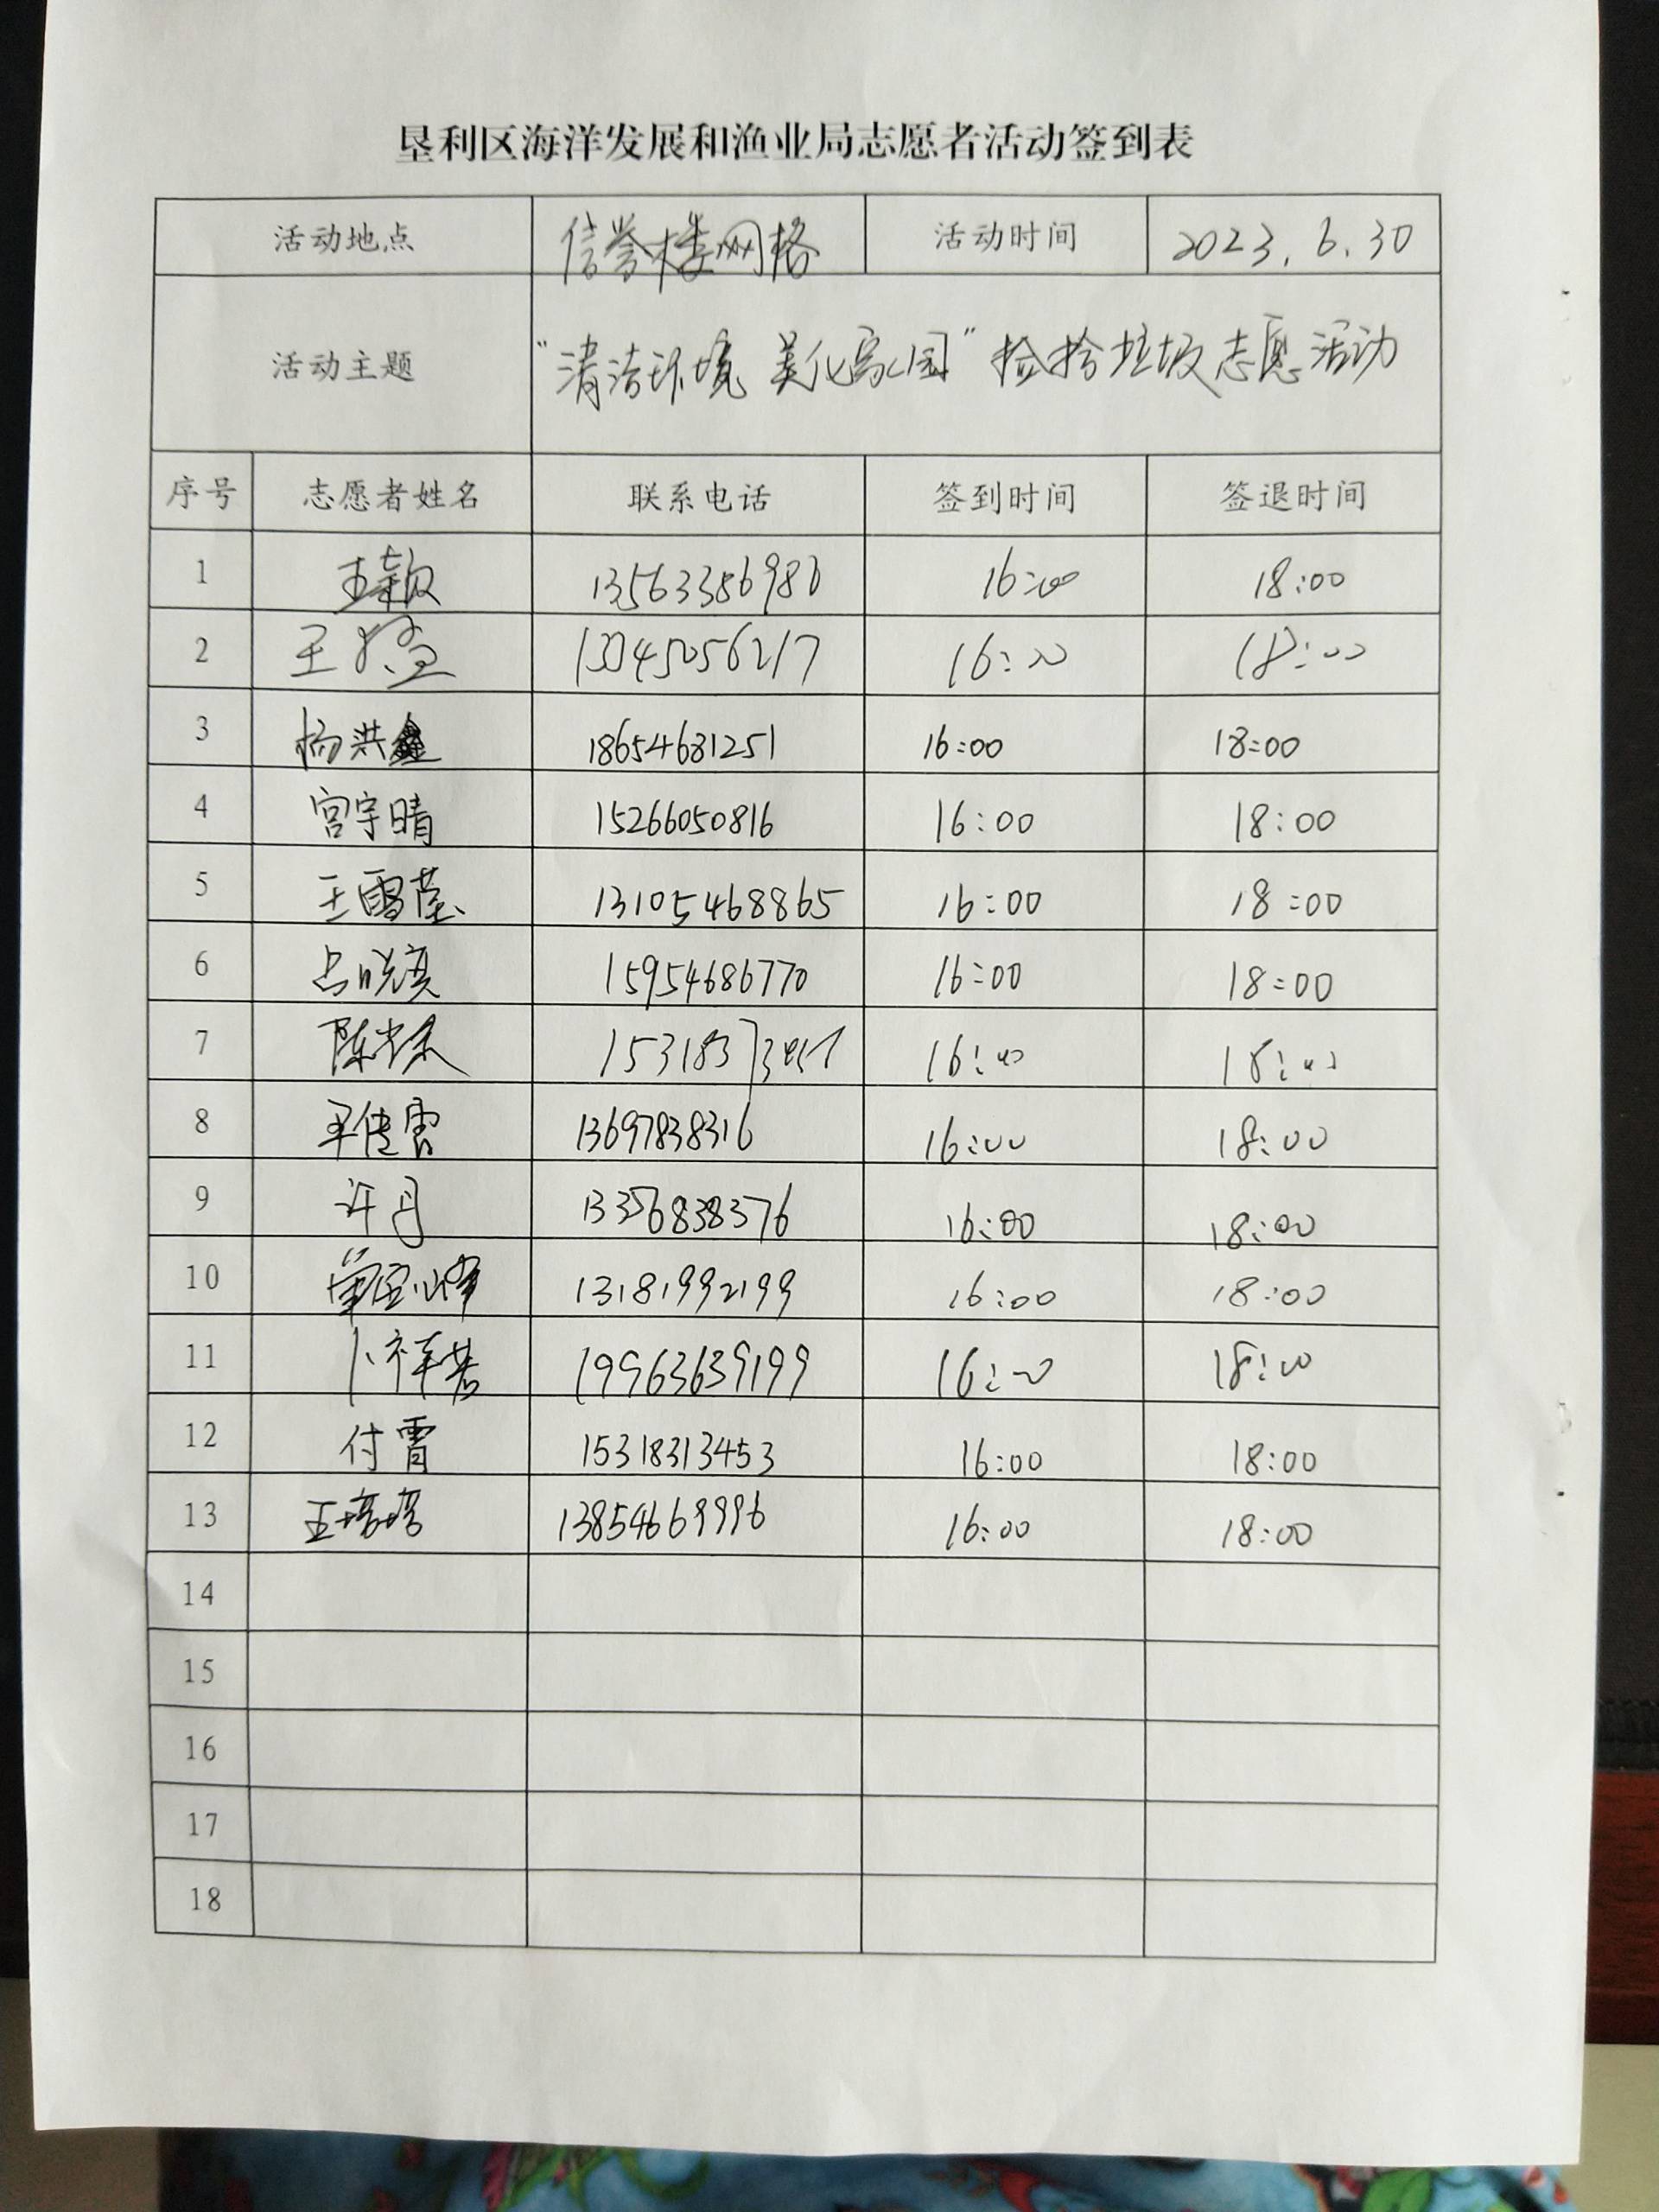 垦利区海洋发展和渔业局志愿者活动签到表
活动地点 信誉楼网格 活动时间 2023.6.30
活动主题 “清洁环境 美化家园”捡拾垃圾志愿活动
序号 志愿者姓名 联系电话 签到时间 签退时间
1 王颖 13563386986 16:00 18:00
2 王 16:00 18:00
3 杨洪鑫 18654681251 16:00 18:00
4 宫宇晴 15266050816 16:00 18:00
5 王雪莹 13105468865 16:00 18:00
6 15954686770 16:00 18:00
7 16:00 18:00
8 13697838316 16:00 18:00
9 许月 16:00 18:00
10 13181992199 16:00 18:00
11 卜祥芸 19963639199 16:00 18:00
12 付霄 15318313453 16:00 18:00
13 王塔塔 13854669996 16:00 18:00
14
15
16
17
18